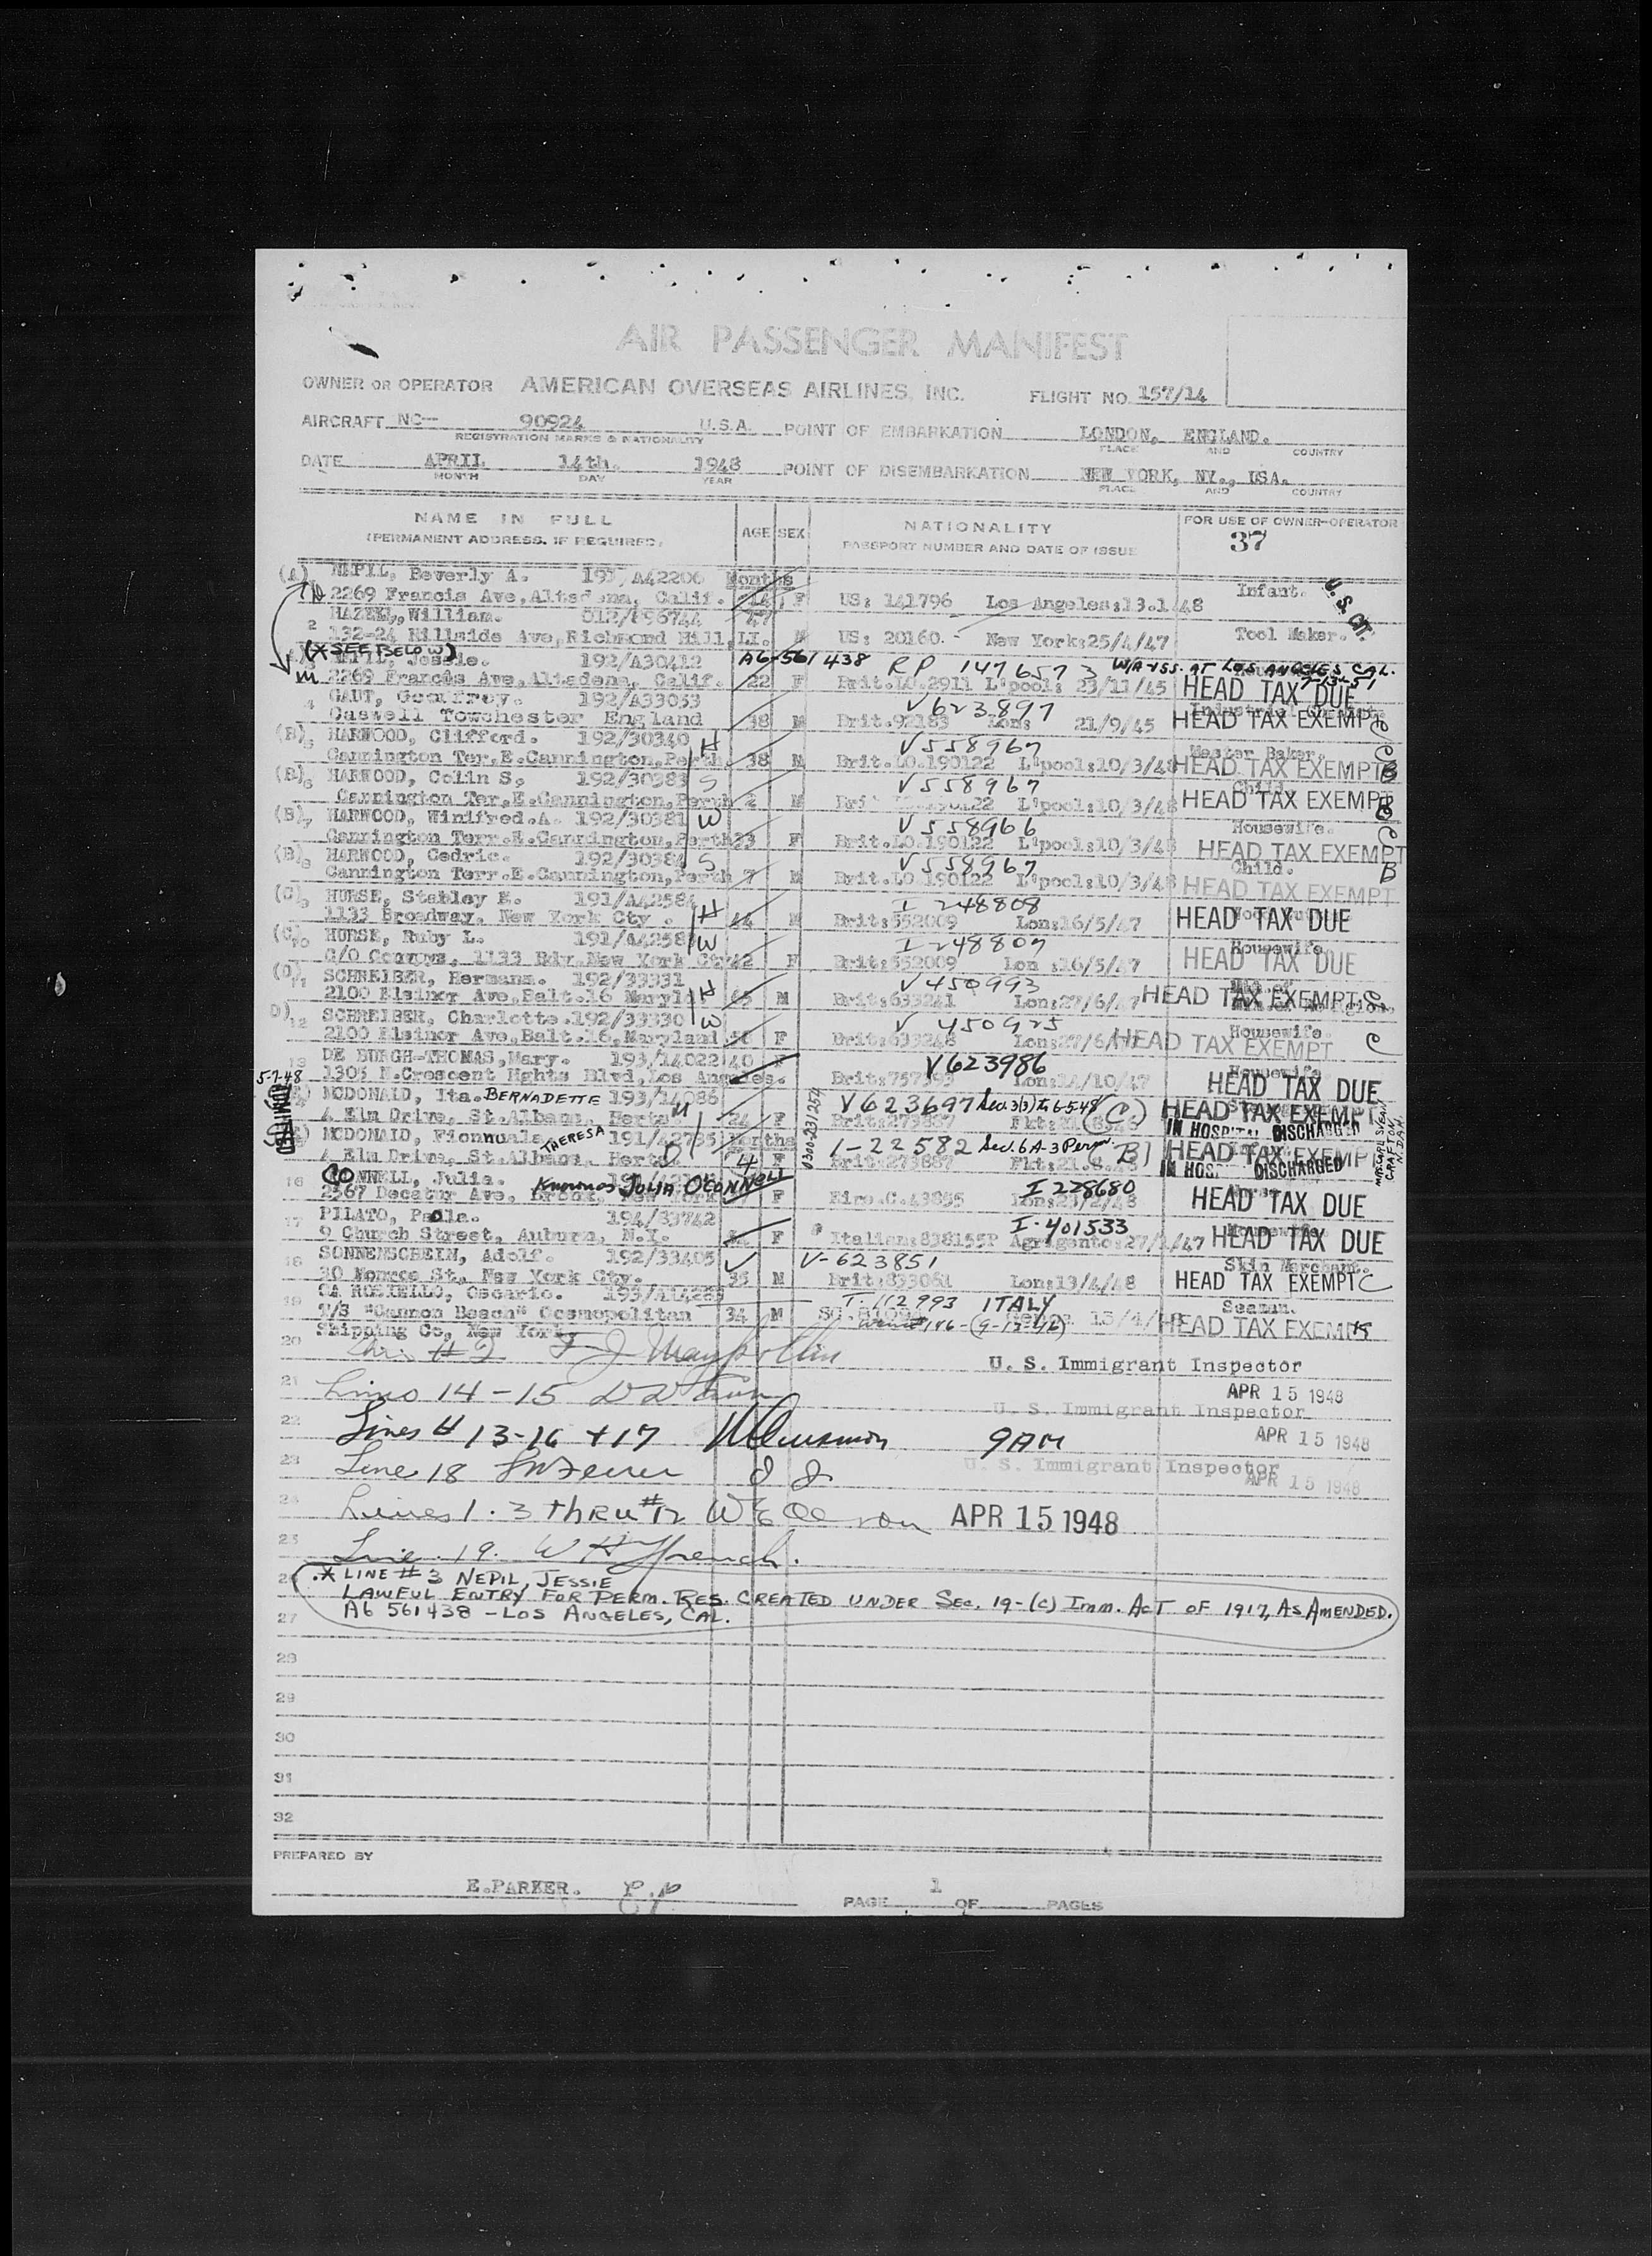 AIR PASSENGER MANIFEST
OWNER OR OPERATOR AMERICAN OVERSEAS AIRLINES, INC. FLIGHT NO. 157/14
AIRCRAFT NC— 90924 U.S.A. POINT OF EMBARKATION LONDON, ENGLAND.
REGISTRATION MARKS & NATIONALITY PLACE AND COUNTRY
DATE APRIL 14th. 1948 POINT OF DISEMBARKATION NEW YORK, NY., USA.
MONTH DAY YEAR PLACE AND COUNTRY
NAME IN FULL AGE SEX NATIONALITY FOR USE OF OWNER-OPERATOR
(PERMANENT ADDRESS, IF REQUIRED) PASSPORT NUMBER AND DATE OF ISSUE 37
(A) NEPIL, Beverly A. 193/A42206 Months Infant. U.S. CIT.
2269 Francis Ave, Altadena, Calif. 14 F US: 141796 Los Angeles:13.1.48
2 HAZELL, William. 012/ 47
132-24 Hillside Ave, Richmond Hill, LI. M US: 20160. New York:25/4/47 Tool Maker.
(* SEE BELOW)
NEPIL, Jessie. 192/A30412 A6-561438 RP 147657 3 W/A ISS. AT LOS ANGELES CAL. 7-13-51
2269 Francis Ave, Altadena, Calif. 22 F Brit.LO.2911 L'pool: 23/11/45 HEAD TAX DUE
4 GAUT, Geoffrey. 192/A33053 V623897
Caswell Towchester England 38 M Brit.92183 Lon: 21/9/45 HEAD TAX EXEMPT C
(B) 5 HARWOOD, Clifford. 192/30340 H V558967 Master Baker. C
Cannington Ter.E.Cannington,Perth 38 M Brit.LO.190122 L'pool:10/3/48 HEAD TAX EXEMPT B
(B) 6 HARWOOD, Colin S. 192/30383 S V558967 Child.
Cannington Ter,E.Cannington,Perth 2 M Brit.LO.190122 L'pool:10/3/48 HEAD TAX EXEMPT B
(B) 7 HARWOOD, Winifred.A. 192/30381 W V558966 Housewife. C
Cannington Terr.E.Cannington,Perth 33 F Brit.LO.190122 L'pool:10/3/48 HEAD TAX EXEMPT
(B) 8 HARWOOD, Cedric. 192/30384 S V558967 Child. B
Cannington Terr.E.Cannington,Perth 7 M Brit.LO.190122 L'pool:10/3/48 HEAD TAX EXEMPT
(C) 9 HURSE, Stanley E. 191/A42584 H I 248808
1133 Broadway, New York Cty . 44 M Brit:552009 Lon:16/5/47 HEAD TAX DUE
(C) 10 HURSE, Ruby L. 191/A4258 W I 248807 Housewife.
C/O Conways, 1133 Bdy New York Cty 42 F Brit:552009 Lon :16/5/47 HEAD TAX DUE
(D) 11 SCHREIBER, Hermann. 192/33331 H V450993
2100 Elsinor Ave, Balt.16 Maryld 65 M Brit:633241 Lon:27/6/47 HEAD TAX EXEMPT C
D) 12 SCHREIBER, Charlotte. 192/33330 W V 450925 Housewife.
2100 Elsinor Ave, Balt.16, Maryland 56 F Brit:633248 Lon:27/6/47 HEAD TAX EXEMPT C
13 DE BURGH-THOMAS, Mary. 193/14022 40 F V623986 Housewife
5-7-48 1305 N.Crescent Hghts Blvd, Los Angeles. Brit:757393 Lon:14/10/47 HEAD TAX DUE
ADMITTED MCDONALD, Ita. BERNADETTE 193/14086 V623697 Sec.3(3) to 6-5-48 (C) HEAD TAX EXEMPT
4 Elm Drive, St.Albans, Herts M 24 F Brit:273887 IN HOSPITAL DISCHARGED
0300-231254
MCDONALD, Fionnuala THERESA 191/42735 Months I-22582 Sec.6A-3 Perm. B) HEAD TAX EXEMPT
4 Elm Drive, St.Albans, Herts. D 4 F Brit:273887 IN HOS. DISCHARGED
16 CONNELL, Julia. Known as JULIA O'CONNELL I 228680
2567 Decatur Ave, Bronx, New York F Eire.C.43855 Lon:23/2/48 HEAD TAX DUE
17 PILATO, Paola. 194/33742 I-401533
9 Church Street, Auburn, N.Y. F Italian:838155P Agrigento:27/ /47 HEAD TAX DUE
18 SONNENSCHEIN, Adolf. 192/33405 V-623851 Skin Merchant.
30 Monroe St, New York Cty. 35 M Brit:833061 Lon:13/4/48 HEAD TAX EXEMPT C
19 CA ROSIELLO, Oscario. 193/A14285 T-112993 ITALY Seaman.
T/S "Cannon Beach" Cosmopolitan 34 M 15/4/ HEAD TAX EXEMPT
Shipping Co, New York.
20 #2 U. S. Immigrant Inspector
21 Lines 14-15 APR 15 1948
U. S. Immigrant Inspector
22 Lines # 13-16 +17 9AM APR 15 1948
23 Line 18 U. S. Immigrant Inspector APR 15 1948
24 Lines 1. 3 THRU #12 APR 15 1948
25 Line 19. W H French.
26 * LINE # 3 NEPIL, JESSIE
LAWFUL ENTRY FOR PERM. RES. CREATED UNDER SEC. 19-(C) IMM. ACT OF 1917, AS AMENDED.
27 A6 561438 - LOS ANGELES, CAL.
28
29
30
31
32
PREPARED BY
E.PARKER.
PAGE 1 OF PAGES